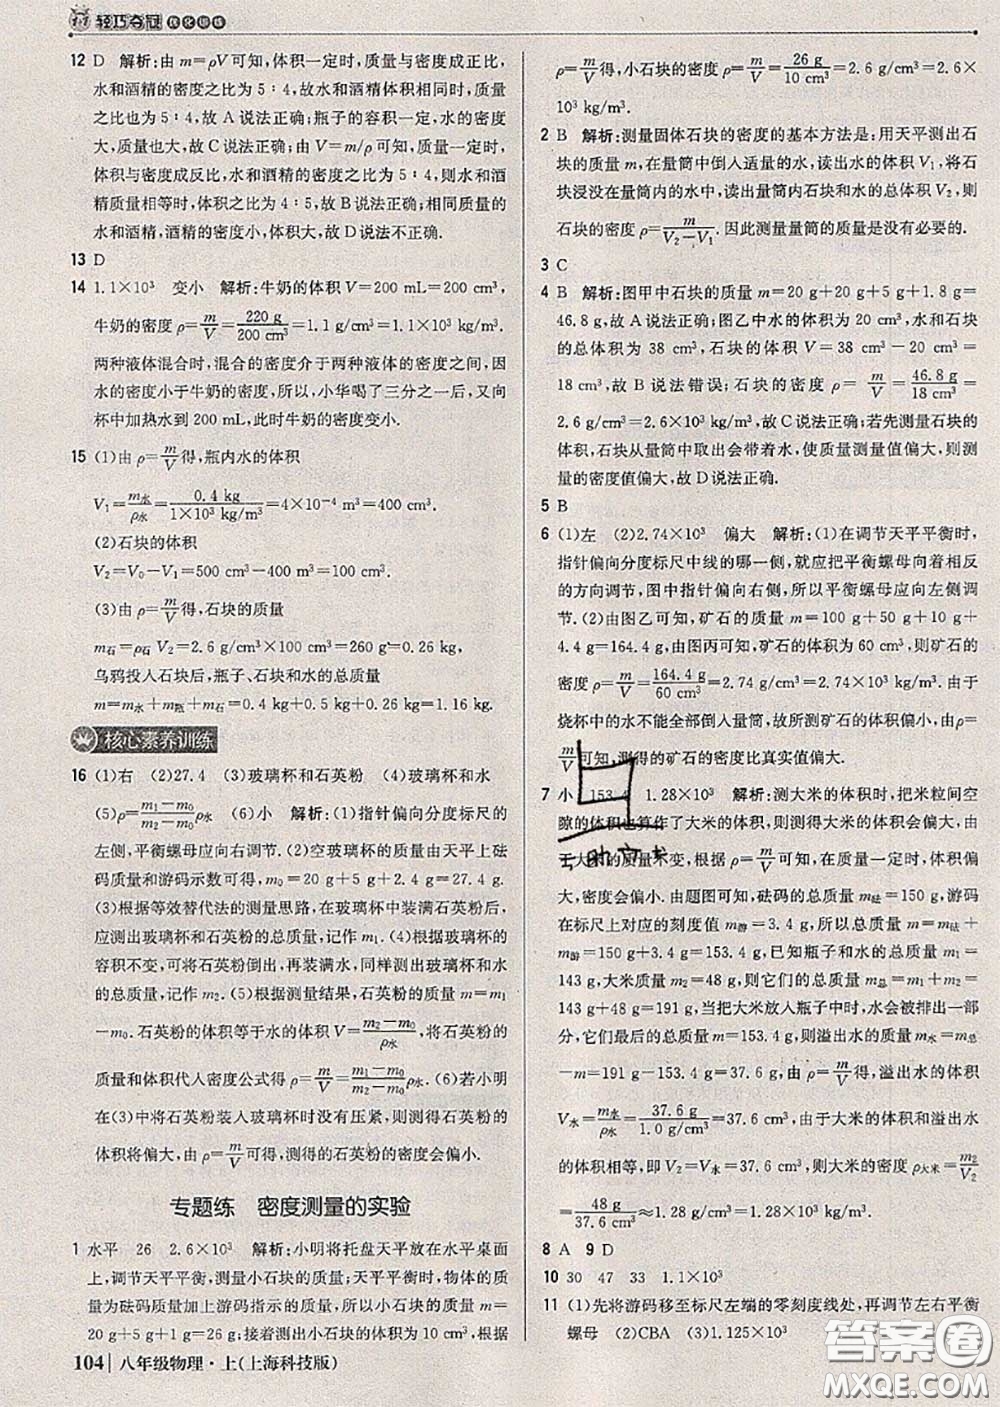 轻巧夺冠 优化训练
12 D 解析:由 m=ρV 可知,体积一定时,质量与密度成正比,
水和酒精的密度之比为 5∶4,故水和酒精体积相同时,质量
之比也为 5∶4,故 A 说法正确;瓶子的容积一定,水的密度
大,质量也大,故 C 说法正确;由 V=m/ρ 可知,质量一定时,
体积与密度成反比,水和酒精的密度之比为 5∶4,则水和酒精
质量相等时,体积之比为 4∶5,故 B 说法正确;相同质量的
水和酒精,酒精的密度小,体积大,故 D 说法不正确.
13 D
14 1.1×10³ 变小 解析:牛奶的体积 V=200 mL=200 cm³,
牛奶的密度 ρ=m/V=220 g/200 cm³=1.1 g/cm³=1.1×10³ kg/m³.
两种液体混合时,混合的密度介于两种液体的密度之间,因
水的密度小于牛奶的密度,所以,小华喝了三分之一后,又向
杯中加热水到 200 mL,此时牛奶的密度变小.
15 (1)由 ρ=m/V得,瓶内水的体积
V₁=m水/ρ水=0.4 kg/1×10³ kg/m³=4×10⁻⁴ m³=400 cm³.
(2)石块的体积
V₂=V₀−V₁=500 cm³−400 cm³=100 cm³.
(3)由 ρ=m/V得,石块的质量
m石=ρ石 V₂=2.6 g/cm³×100 cm³=260 g=0.26 kg,
乌鸦投入石块后,瓶子、石块和水的总质量
m=m水+m瓶+m石=0.4 kg+0.5 kg+0.26 kg=1.16 kg.
核心素养训练
16 (1)右 (2)27.4 (3)玻璃杯和石英粉 (4)玻璃杯和水
(5)ρ=m₁−m₀/m₂−m₀ρ水 (6)小 解析:(1)指针偏向分度标尺的
左侧,平衡螺母应向右调节.(2)空玻璃杯的质量由天平上砝
码质量和游码示数可得,m₀=20 g+5 g+2.4 g=27.4 g.
(3)根据等效替代法的测量思路,在玻璃杯中装满石英粉后,
应测出玻璃杯和石英粉的总质量,记作 m₁.(4)根据玻璃杯的
容积不变,可将石英粉倒出,再装满水,同样测出玻璃杯和水
的总质量,记作 m₂.(5)根据测量结果,石英粉的质量 m=m₁
−m₀.石英粉的体积等于水的体积 V=m₂−m₀/ρ水,将石英粉的
质量和体积代入密度公式得 ρ=m/V=m₁−m₀/m₂−m₀ρ水.(6)若小明
在(3)中将石英粉装入玻璃杯时没有压紧,则测得石英粉的
体积将偏大,由 ρ=m/V可知,测得的石英粉的密度会偏小.
专题练 密度测量的实验
1 水平 26 2.6×10³ 解析:小明将托盘天平放在水平桌面
上,调节天平平衡,测量小石块的质量;天平平衡时,物体的质
量为砝码质量加上游码指示的质量,所以小石块的质量 m=
20 g+5 g+1 g=26 g;接着测出小石块的体积为 10 cm³,根据
104 八年级物理·上(上海科技版)
ρ=m/V得,小石块的密度 ρ=m/V=26 g/10 cm³=2.6 g/cm³=2.6×
10³ kg/m³.
2 B 解析:测量固体石块的密度的基本方法是:用天平测出石
块的质量 m,在量筒中倒入适量的水,读出水的体积 V₁,将石
块浸没在量筒内的水中,读出量筒内石块和水的总体积 V₂,则
石块的密度 ρ=m/V₂−V₁.因此测量量筒的质量是没有必要的.
3 C
4 B 解析:图甲中石块的质量 m=20 g+20 g+5 g+1.8 g=
46.8 g,故 A 说法正确;图乙中水的体积为 20 cm³,水和石块
的总体积为 38 cm³,石块的体积 V=38 cm³−20 cm³=
18 cm³,故 B 说法错误;石块的密度 ρ=m/V=46.8 g/18 cm³=
2.6 g/cm³=2.6×10³ kg/m³,故 C 说法正确;若先测量石块的
体积,石块从量筒中取出会带着水,使质量测量值偏大,则测
量的密度值偏大,故 D 说法正确.
5 B
6 (1)左 (2)2.74×10³ 偏大 解析:(1)在调节天平平衡时,
指针偏向分度标尺中线的哪一侧,就应把平衡螺母向相反
的方向调节,图中指针偏向右侧,所以平衡螺母应向左侧调
节.(2)由图乙可知,矿石的质量 m=100 g+50 g+10 g+
4.4 g=164.4 g,由图丙可知,矿石的体积为 60 cm³,矿石的
密度 ρ=m/V=164.4 g/60 cm³=2.74 g/cm³=2.74×10³ kg/m³.由于
烧杯中的水不能全部倒入量筒,故所测矿石的体积偏小,由 ρ=
m/V可知,测得的矿石的密度比真实值偏大.
7 小 153.4 1.28×10³ 解析:测大米的体积时,把米粒间空
隙的体积也算作了大米的体积,则测得大米的体积会偏大,由
于大米的质量不变,根据 ρ=m/V可知,大米质量一定,体积偏
大,密度会偏小.由题图可知,砝码的总质量 m砝=150 g,游码
在标尺上对应的刻度值 m游=3.4 g,所以总质量 m=m砝+
m游=150 g+3.4 g=153.4 g,已知瓶子和水的总质量 m₁=
143 g,大米质量 m₂=48 g,则它们的总质量 m总=m₁+m₂=
143 g+48 g=191 g,当把大米放入瓶子中时,水会被排出一部
分,它们最后的总质量 m=153.4 g,则溢出水的质量 m水=m总
−m=191 g−153.4 g=37.6 g,由 ρ=m/V得,溢出水的体积
V水=m水/ρ水=37.6 g/1.0 g/cm³=37.6 cm³,由于大米的体积和溢出水
的体积相等,即 V₂=V水=37.6 cm³,所以大米的密度 ρ大米=m₂/V₂
=48 g/37.6 cm³≈1.28 g/cm³=1.28×10³ kg/m³.
8 A 9 D
10 30 47 33 1.1×10³
11 (1)先将游码移至标尺左端的零刻度线处,再调节左右平衡
螺母 (2)CBA (3)1.125×10³
答案圈
MXQE.COM